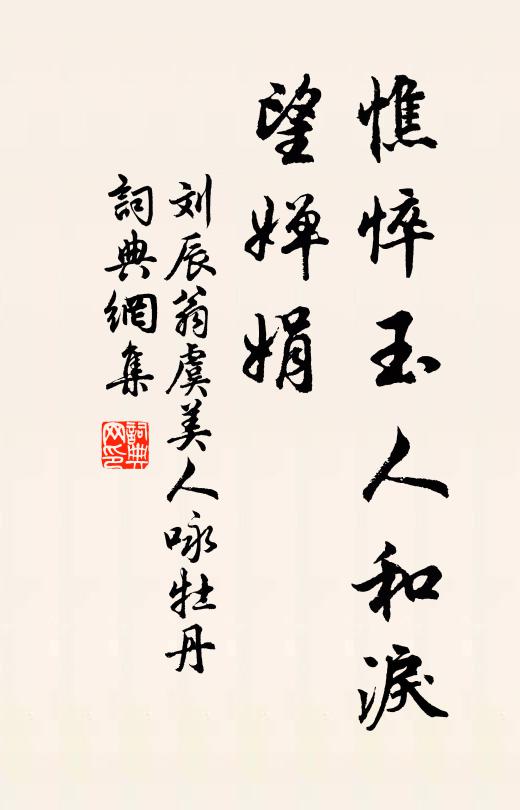 憔悴玉人和淚
望嬋娟
刘辰翁虞美人咏牡丹
詞典網集
詞典
网印